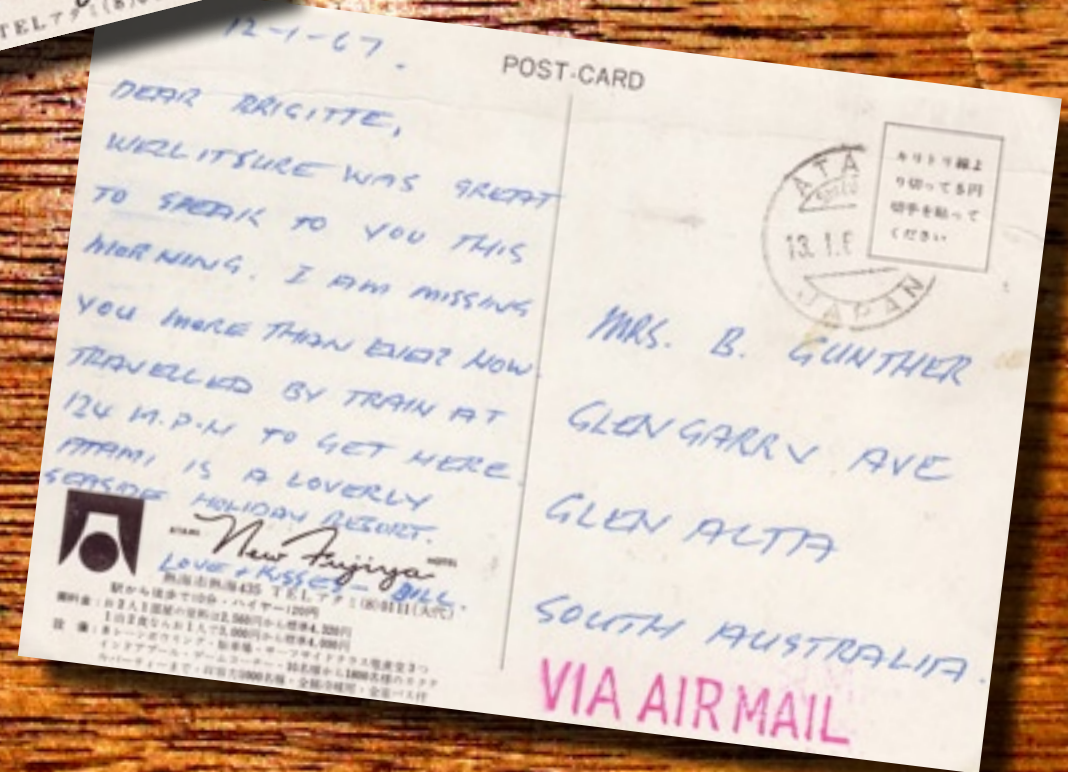 TEL アタミ(8)
12-1-67.
POST-CARD
DEAR BRIGITTE,
WELL IT SURE WAS GREAT
TO SPEAK TO YOU THIS
MORNING. I AM MISSING
YOU MORE THAN EVER NOW.
TRAVELLED BY TRAIN AT
124 M.P.H TO GET HERE.
ATAMI IS A LOVERLY
SEASIDE HOLIDAY RESORT.
LOVE + KISSES - BILL.
ATAMI New Fujiya HOTEL
熱海市熱海435 TEL アタミ(8)0111(大代)
駅から徒歩で10分・ハイヤー120円
1泊2食ならお1人で3,000円から標準4,000円
キリトリ線よ
り切って5円
切手を貼って
ください
ATA
13.1.6
JAPAN
MRS. B. GUNTHER
GLENGARRY AVE
GLEN ALTA
SOUTH AUSTRALIA.
VIA AIR MAIL